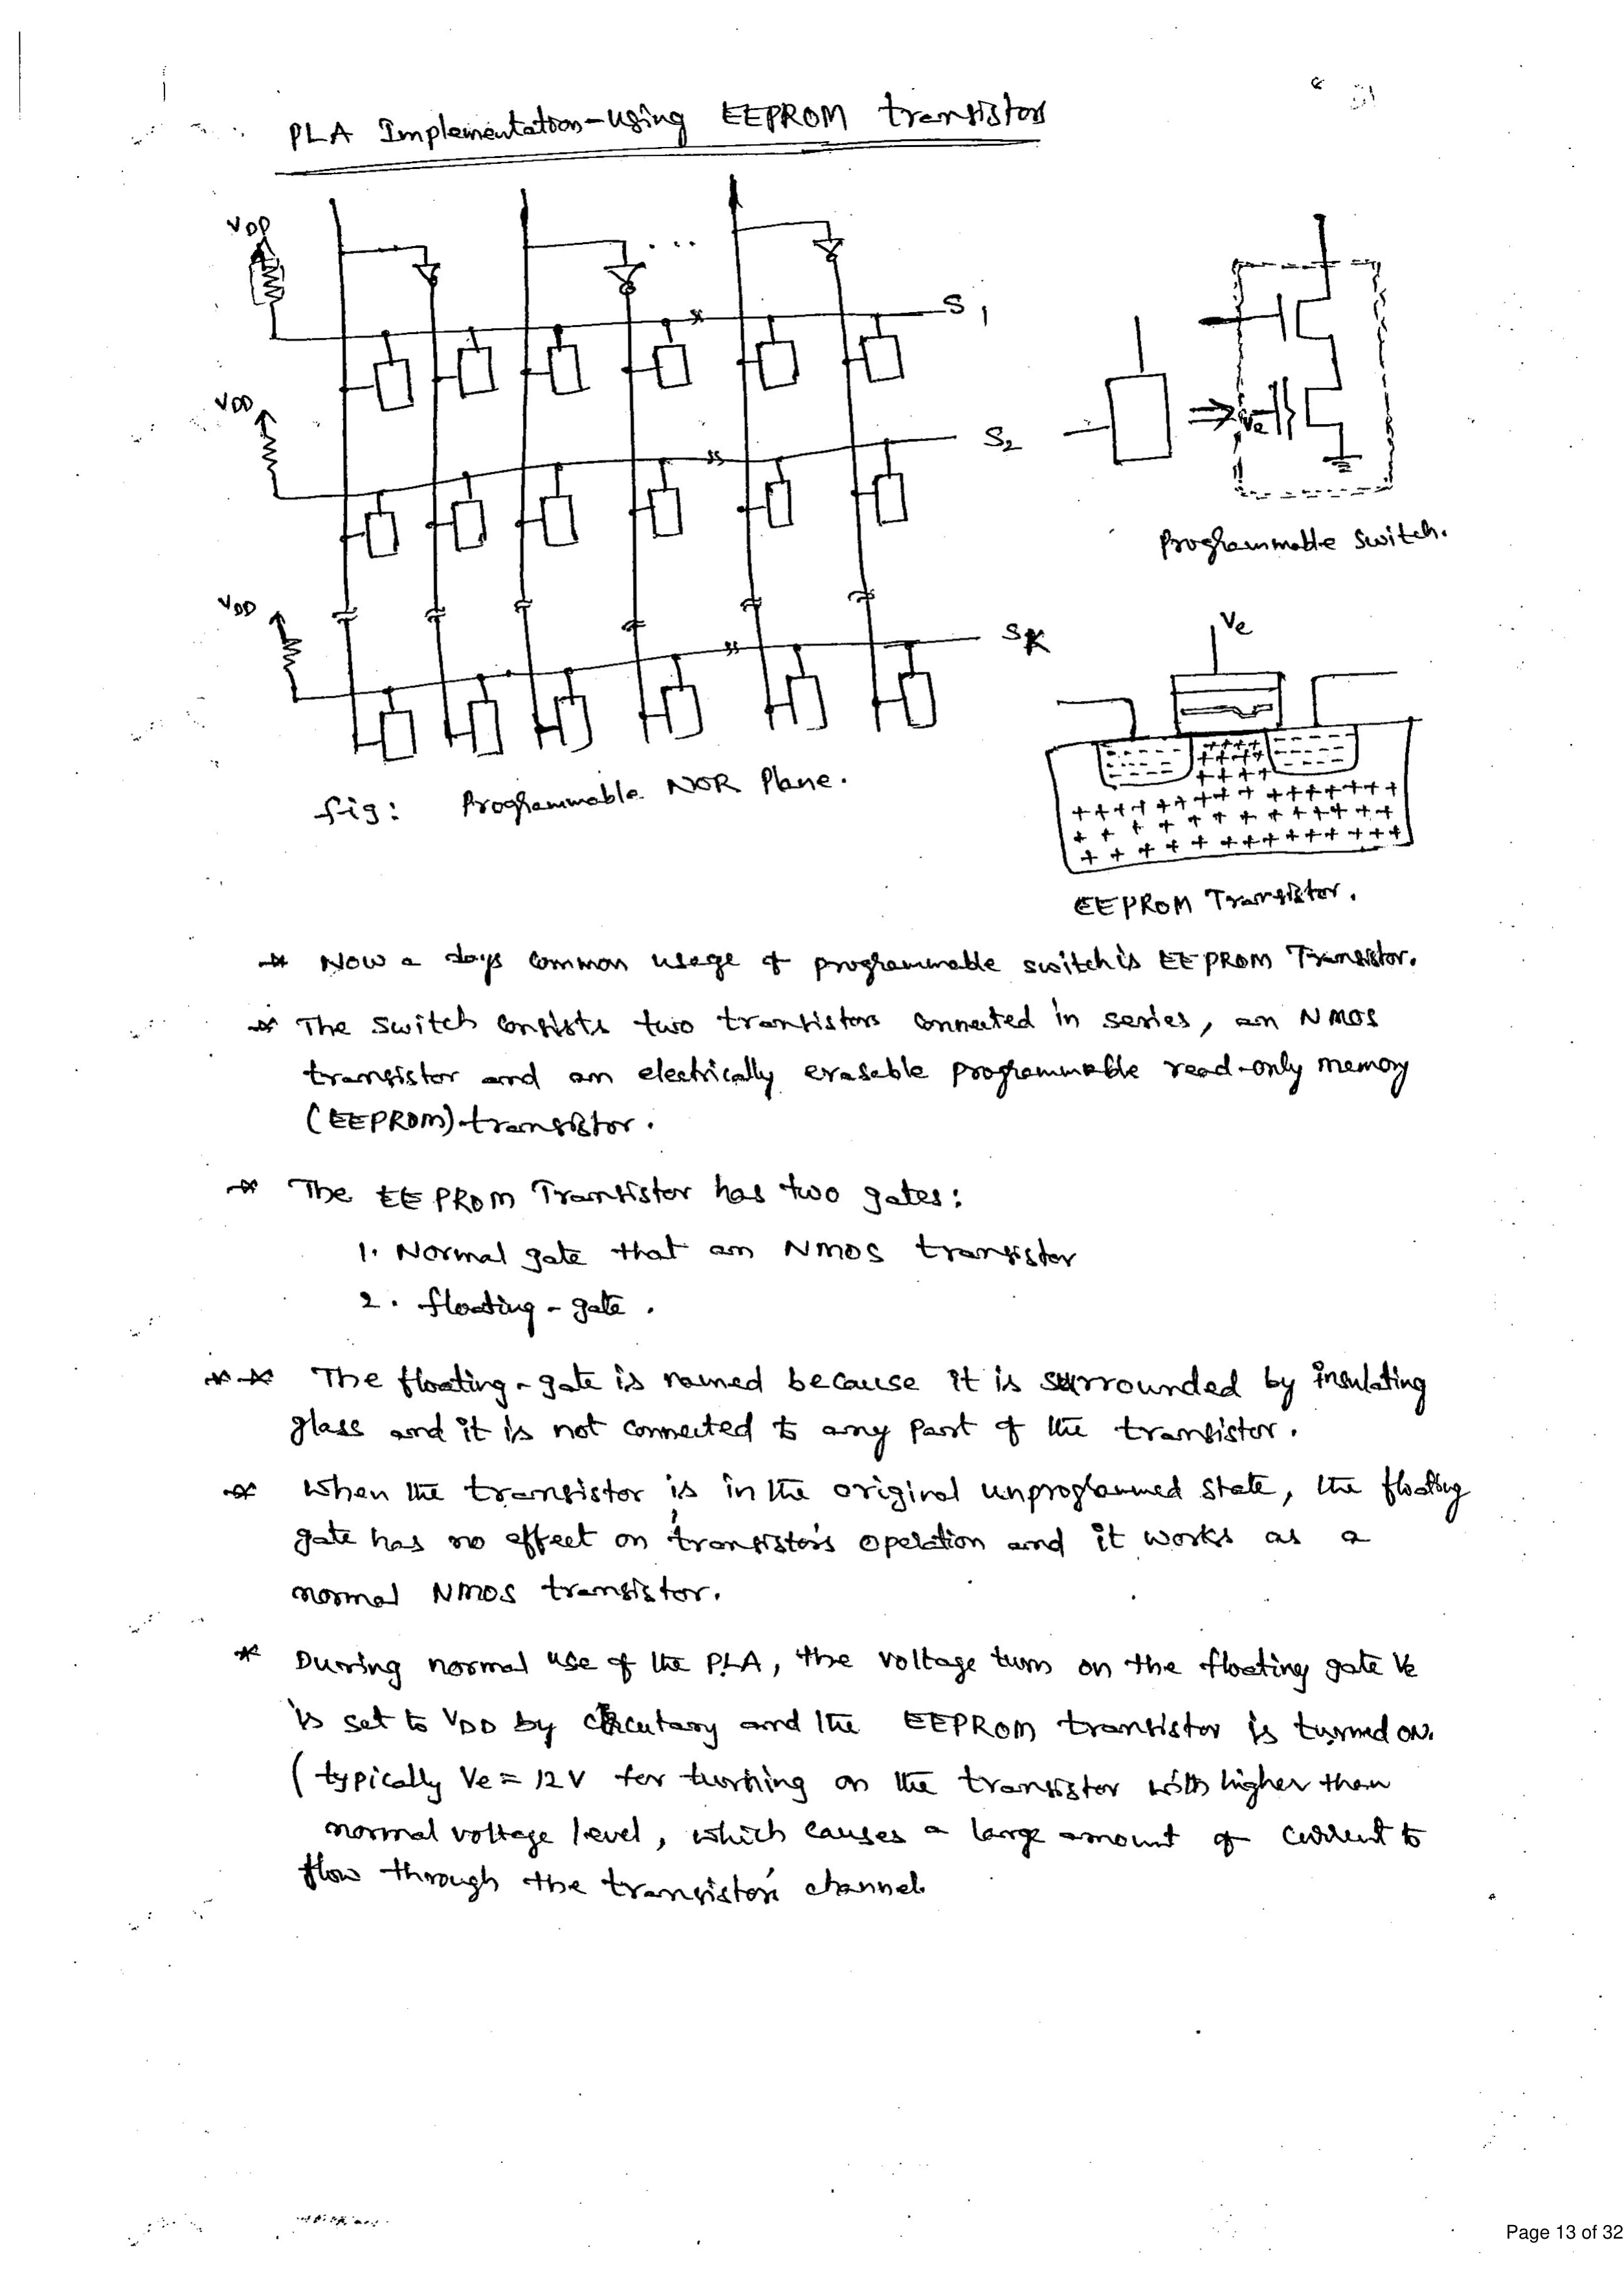 PLA Implementation-using EEPROM transistors
VDD
S1
VDD
S2
Ve
Programmable Switch.
VDD
SK
Ve
fig: Programmable NOR Plane.
EEPROM Transistor.
* Now a days common usage of programmable switch is EEPROM Transistor.
* The switch consists two transistors connected in series, an NMOS
transistor and an electrically erasable programmable read-only memory
(EEPROM) transistor.
* The EEPROM Transistor has two gates:
1. Normal gate that an NMOS transistor
2. floating-gate.
** The floating-gate is named because it is surrounded by insulating
glass and it is not connected to any part of the transistor.
* When the transistor is in the original unprogrammed state, the floating
gate has no effect on transistor's operation and it works as a
normal NMOS transistor.
* During normal use of the PLA, the voltage turn on the floating gate Ve
is set to VDD by circutary and the EEPROM transistor is turned on.
(typically Ve = 12V for turning on the transistor with higher than
normal voltage level, which causes a large amount of current to
flow through the transistor's channel.
Page 13 of 32